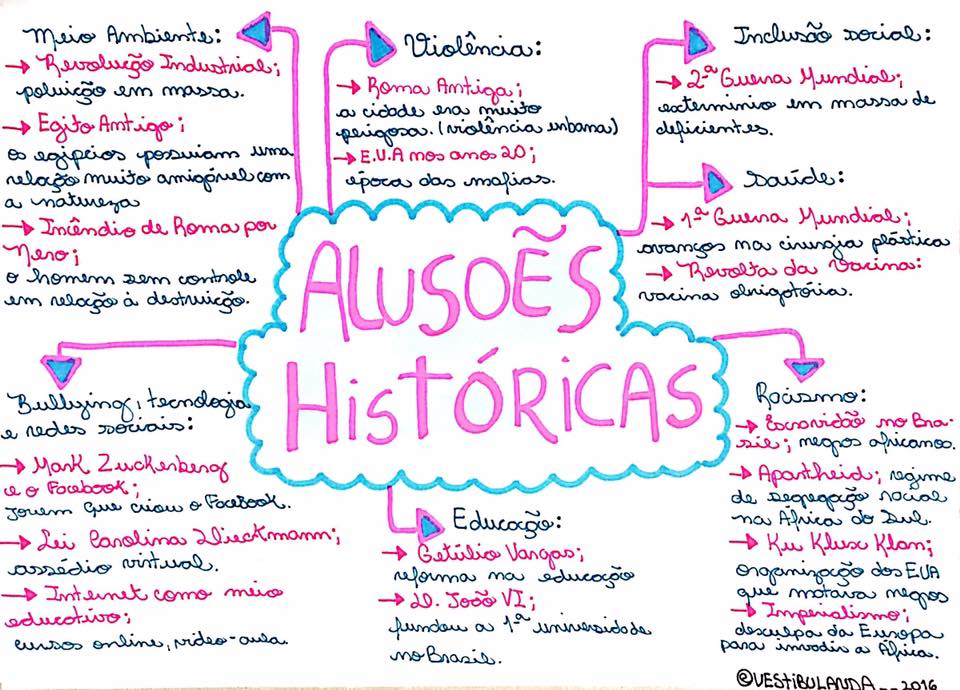 ALUSOẼS
HISTÓRICAS
Meio Ambiente:
→ Revolução Industrial;
poluição em massa.
→ Egito Antigo;
os egípcios possuiam uma
relação muito amigável com
a natureza
→ Incêndio de Roma por
Nero;
o homem sem controle
em relação à destruição.
Violência:
→ Roma Antiga;
a cidade era muito
perigosa. (violência urbana)
→ E.U.A nos anos 20;
época das mafias.
Inclusão social:
→ 2ª Guerra Mundial;
exterminio em massa de
deficientes.
Saúde:
→ 1ª Guerra Mundial;
avanços na cirurgia plástica
→ Revolta da Vacina:
vacina obrigatória.
Bullying, tecnologia
e redes sociais:
→ Mark Zuckerberg
e o Facebook;
Jovem que criou o Facebook.
→ Lei Carolina Dieckmann;
assédio virtual.
→ Internet como meio
educativo;
cursos online, video-aula.
Educação:
→ Getúlio Vargas;
reforma na educação
→ D. João VI;
fundou a 1ª universidade
no Brasil.
Racismo:
→ Escravidão no Bra-
sil; negros africanos.
→ Apartheid; regime
de segregação racial
na África do Sul.
→ Ku Klux Klan;
organização dos EUA
que matava negros
→ Imperialismo;
desculpa da Europa
para invadir a África.
©VESTIBULANDA__2016